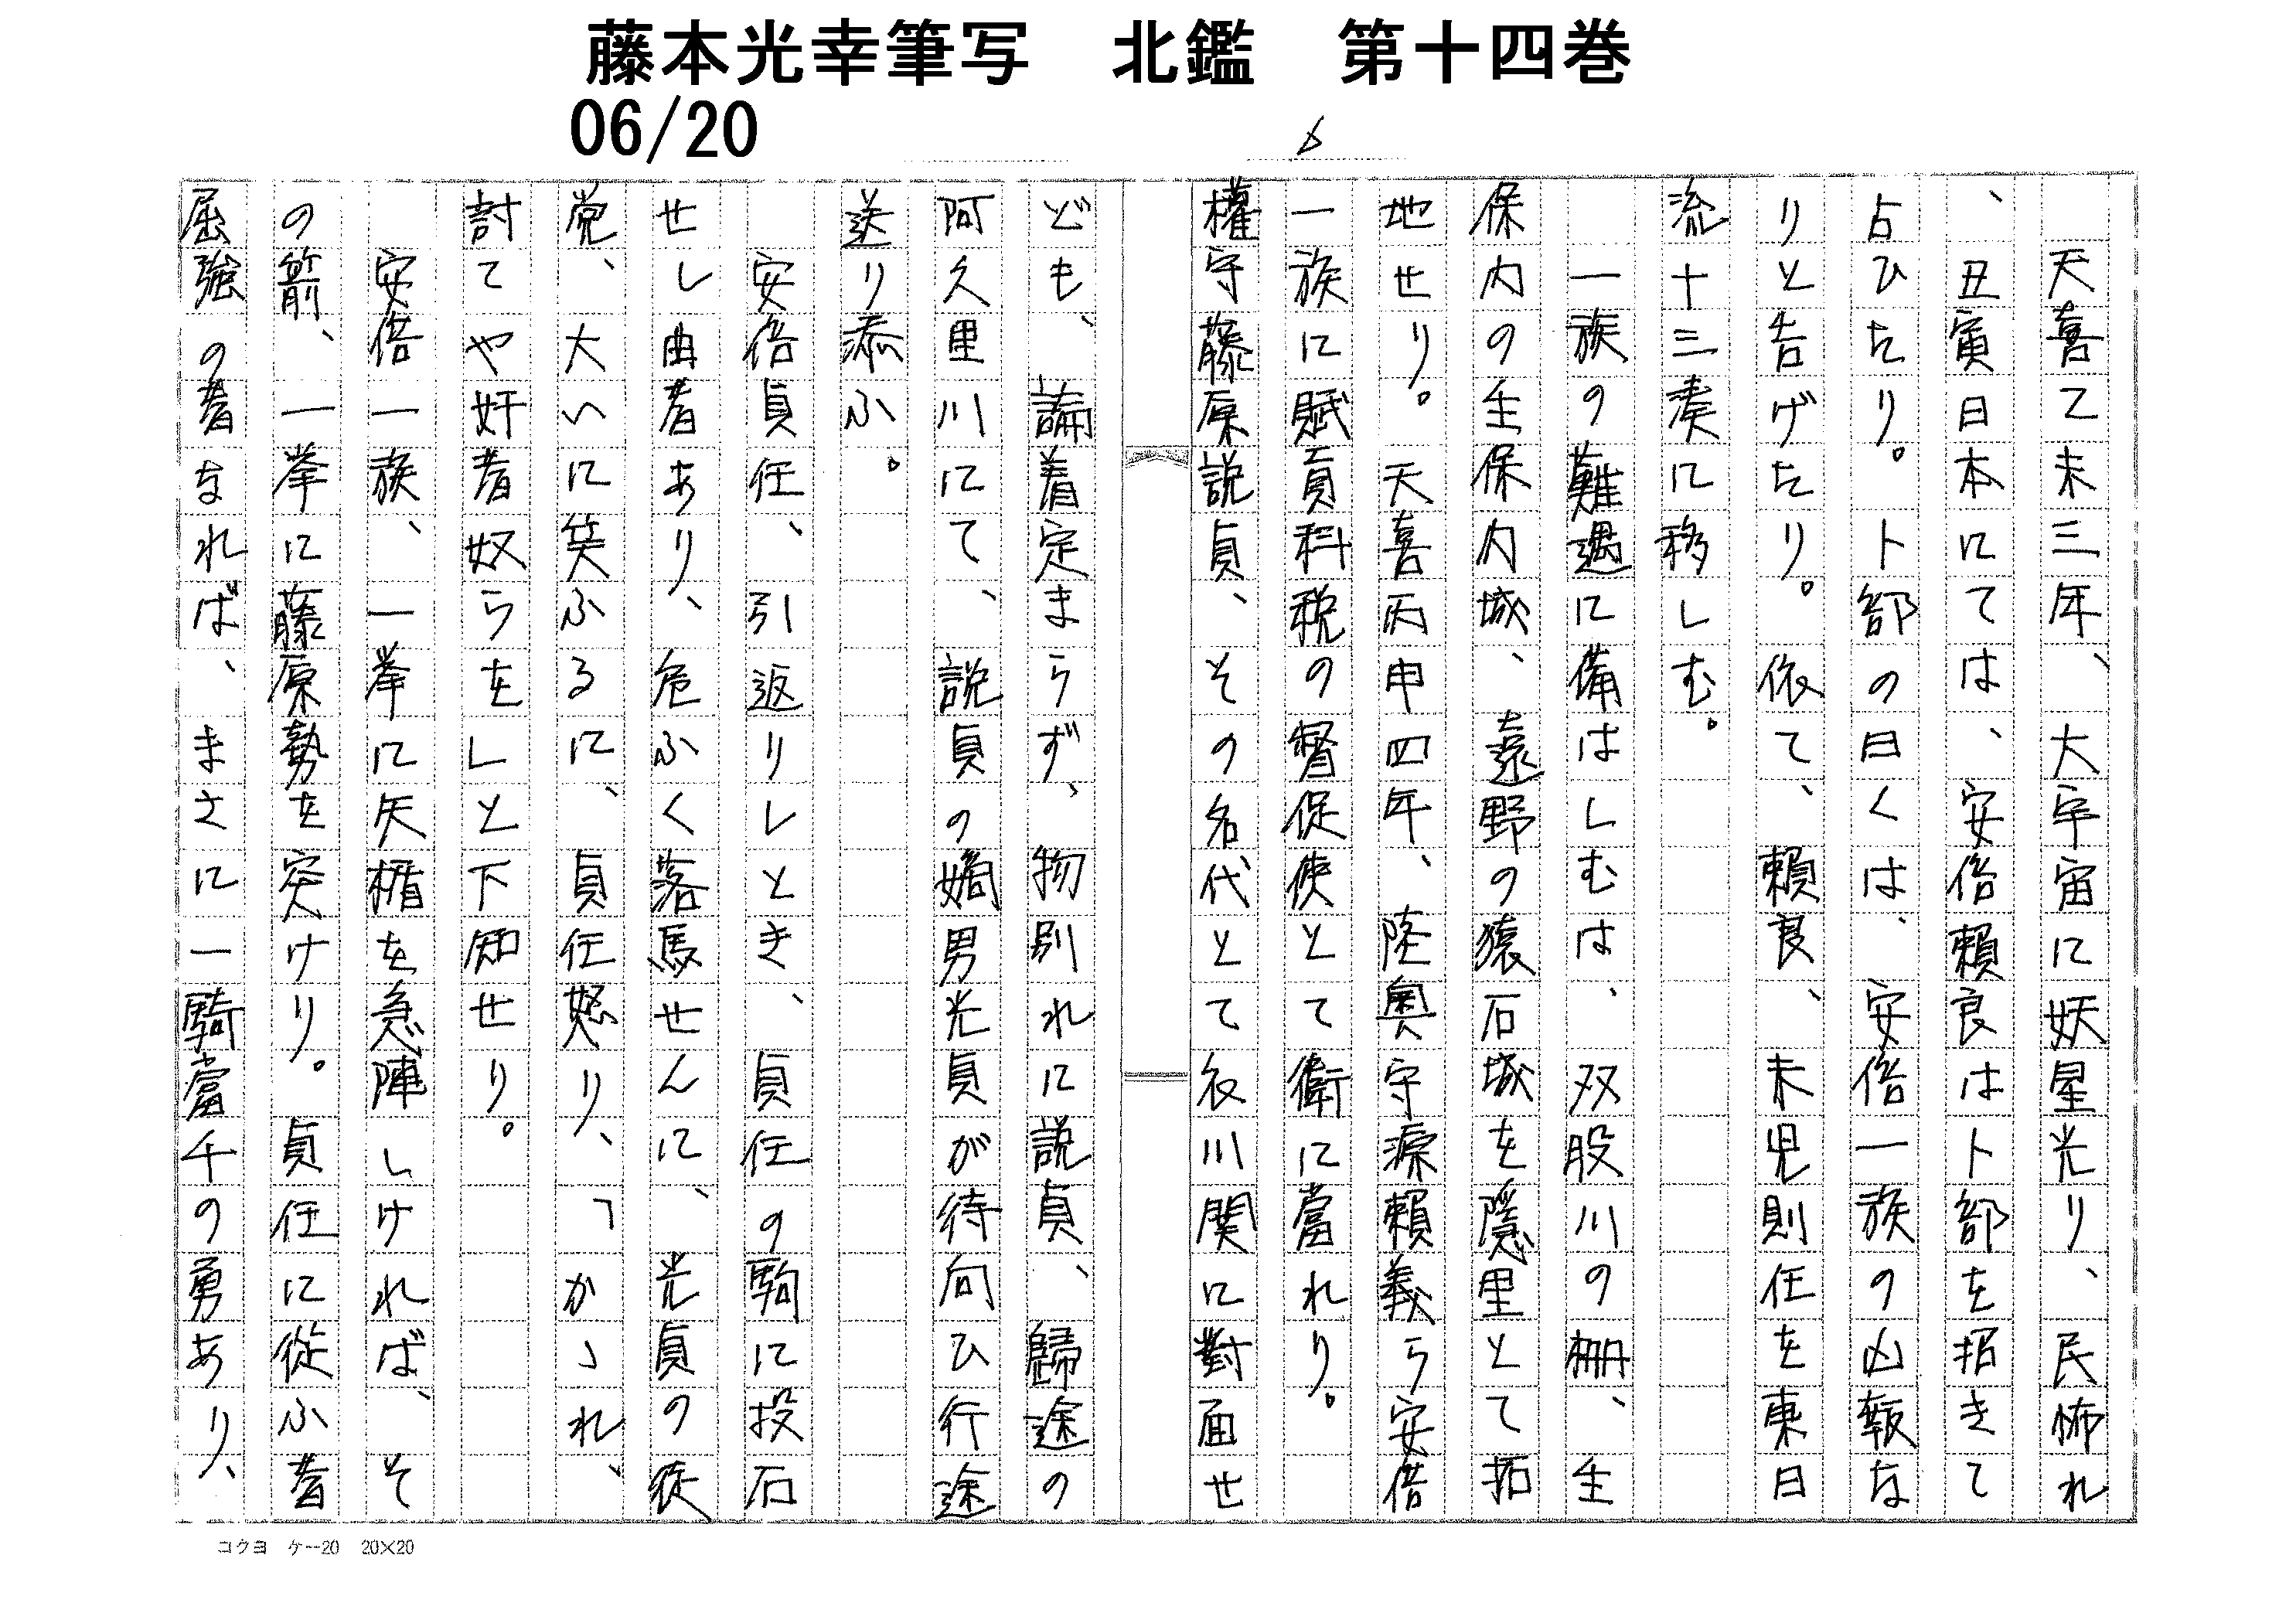 藤本光幸筆写　北鑑　第十四巻
06/20
6
天喜乙未三年、大宇宙に妖星光り、民怖れ
、丑寅日本にては、安倍頼良は卜部を招きて
占ひたり。卜部の曰くは、安倍一族の凶報な
りと告げたり。依て、頼良、末児則任を東日
流十三湊に移しむ。
一族の難遇に備はしむは、双股川の柵、生
保内の生保内城、遠野の猿石城を隠里とて拓
地せり。天喜丙申四年、陸奥守源頼義ら安倍
一族に賦貢科税の督促使とて衛に當れり。
權守藤原説貞、その名代とて衣川関に對面せ
ども、論着定まらず、物別れに説貞、歸途の
阿久里川にて、説貞の嫡男光貞が待向ひ行途
送り添ふ。
安倍貞任、引返りしとき、貞任の駒に投石
せし曲者あり、危ふく落馬せんに、光貞の徒
党、大いに笑ふるに、貞任怒り、「かゝれ、
討てや奸者奴らをしと下知せり。
安倍一族、一挙に矢楯を急陣しければ、そ
の箭、一挙に藤原勢を突けり。貞任に從ふ者
屈強の者なれば、まさに一騎當千の勇あり、
コクヨ　ケー20　20×20